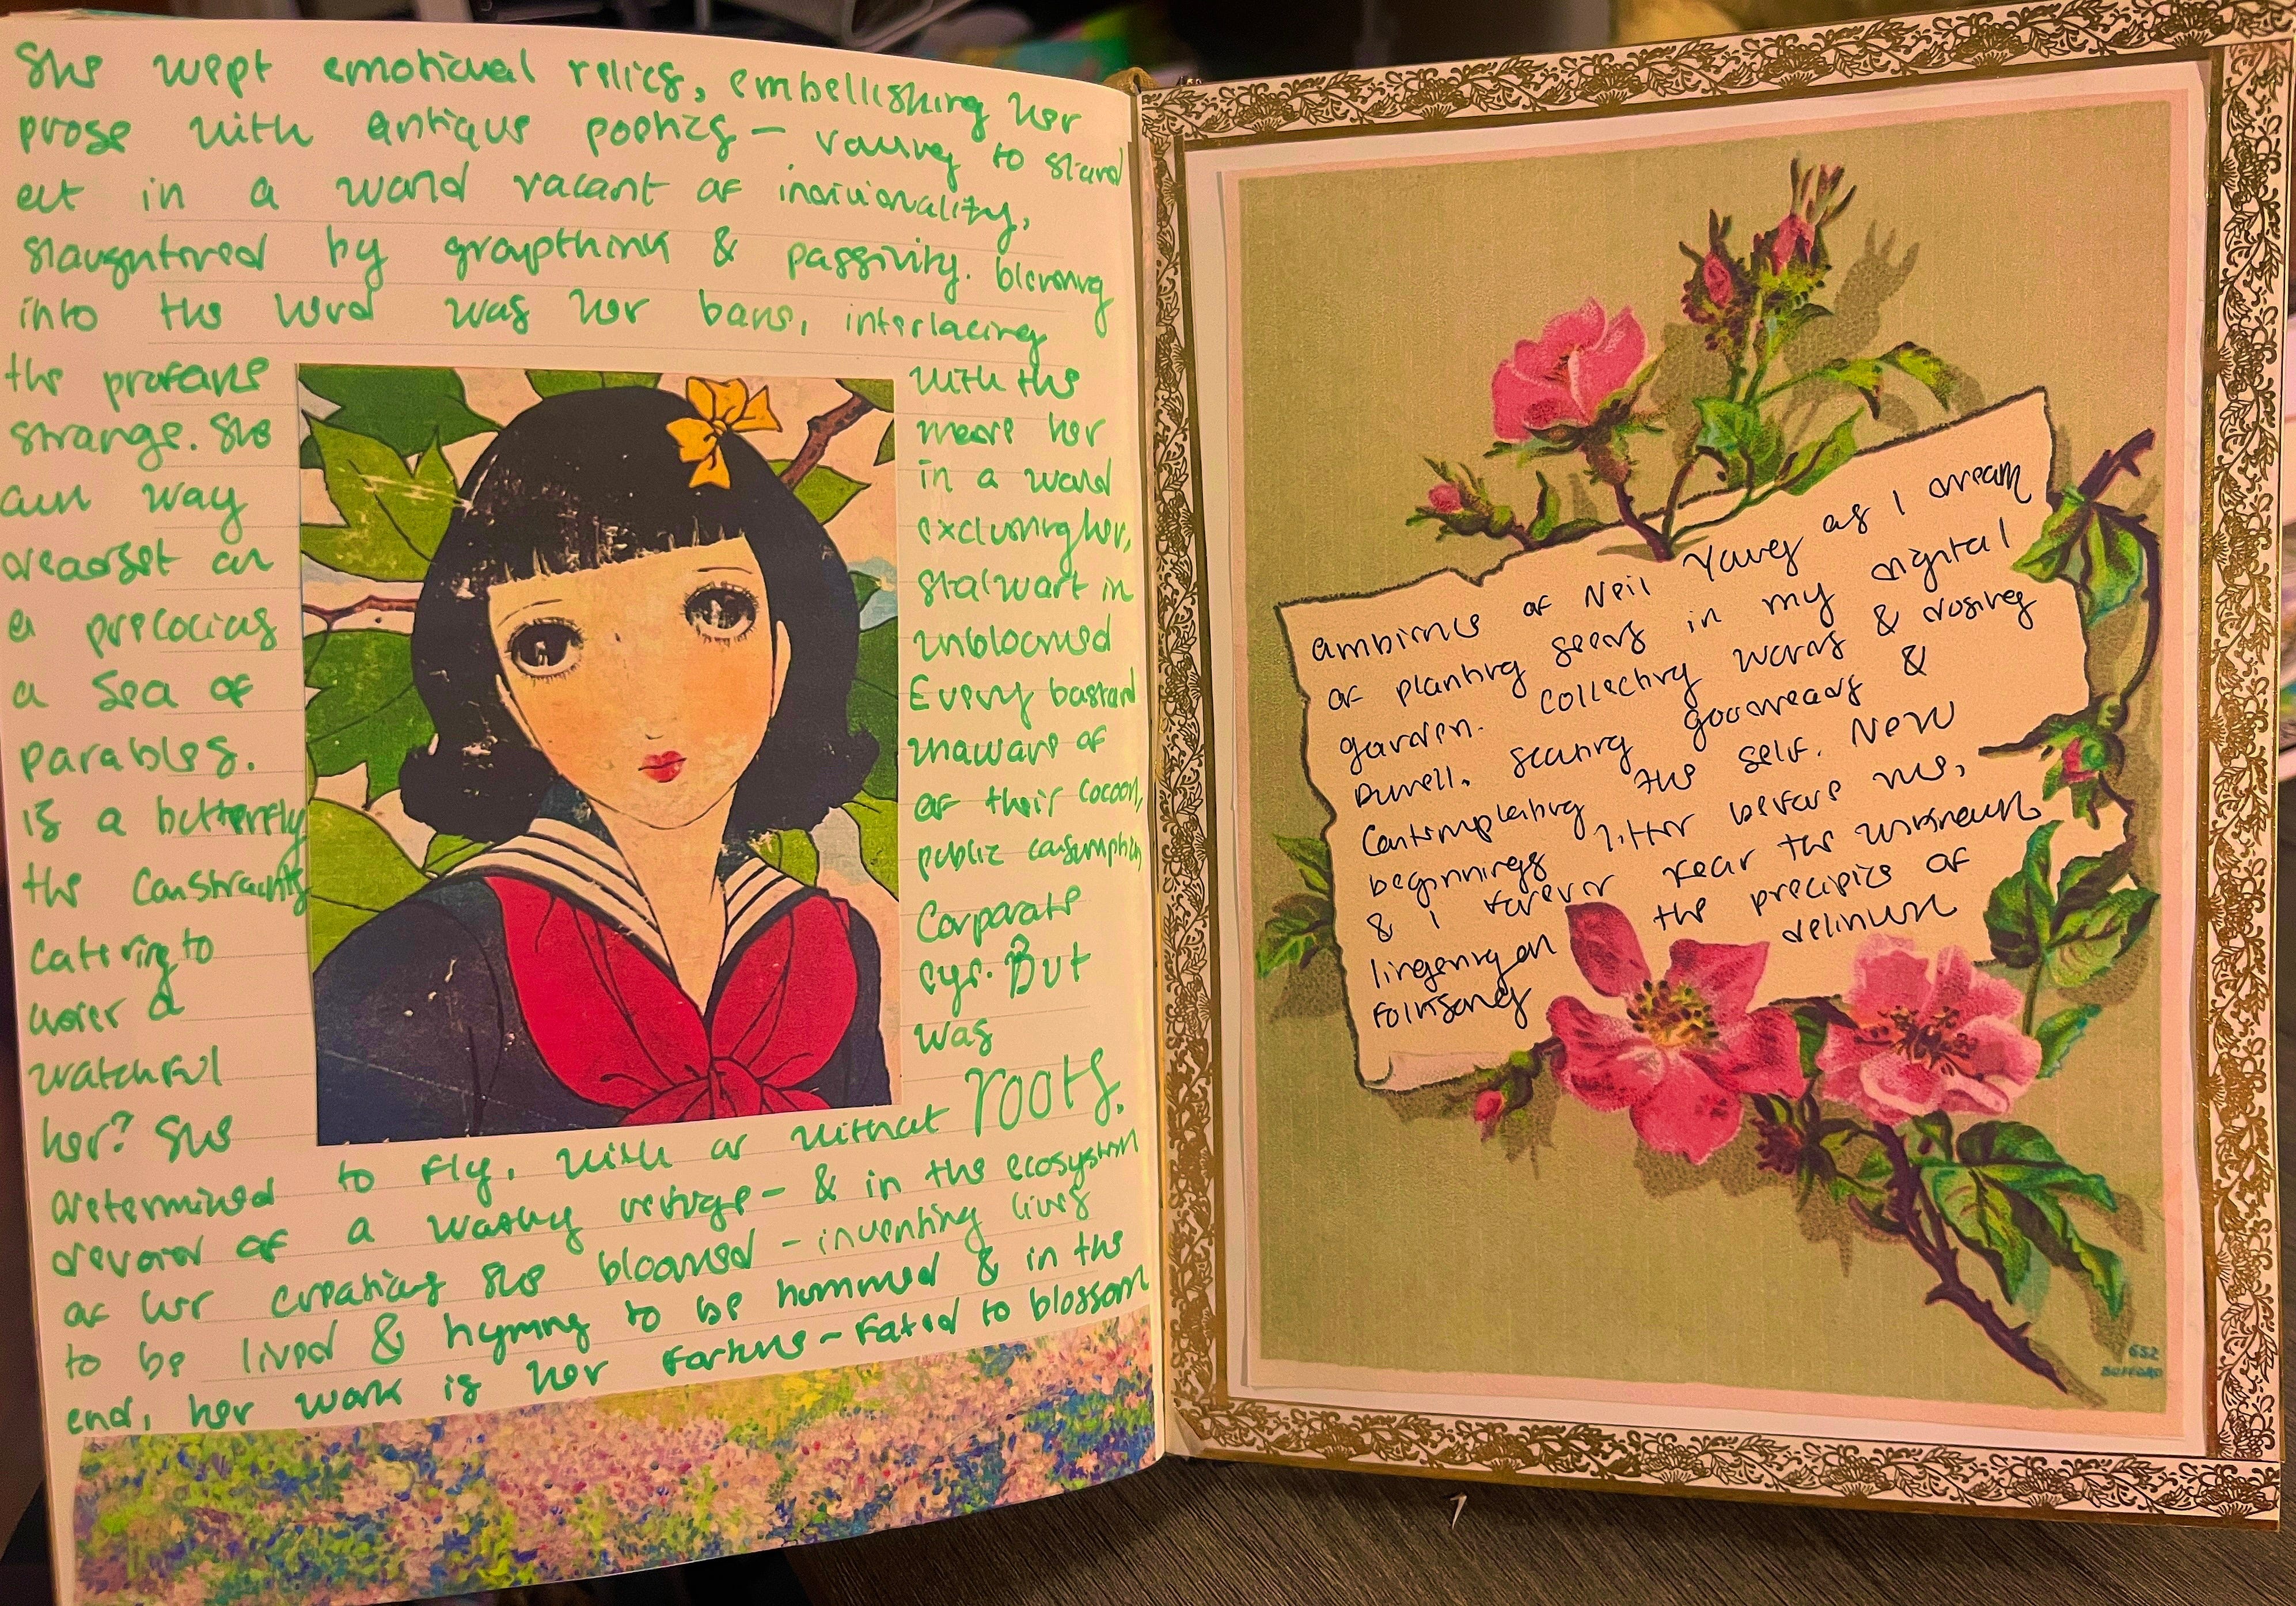 She wept emotional relics, embellishing her
prose with antique poetics – vowing to stand
out in a world vacant of individuality,
slaughtered by groupthink & passivity. blending
into the herd was her bane, interlacing
the profane with the
strange. She made her
own way in a world
deadset on excluding her,
a precocious stalwart in
a sea of unbloomed
parables. Every bastard
is a butterfly unaware of
the constraints of their cocoon,
catering to public consumption,
under a corporate
watchful eye. But
her? She was
determined to fly, with or without roots.
devoid of a washy refuge – & in the ecosystem
of her creations she bloomed – inventing lives
to be lived & hymns to be hummed & in the
end, her work is her fortune – fated to blossom
ambience of Neil Young as I dream
of planting seeds in my digital
garden. Collecting words &
Durell. goodreads &
contemplating the self. New
beginnings litter before me,
& I forever fear the unknown
lingering on the precipice of
folksong delirium
652
BUFFORD